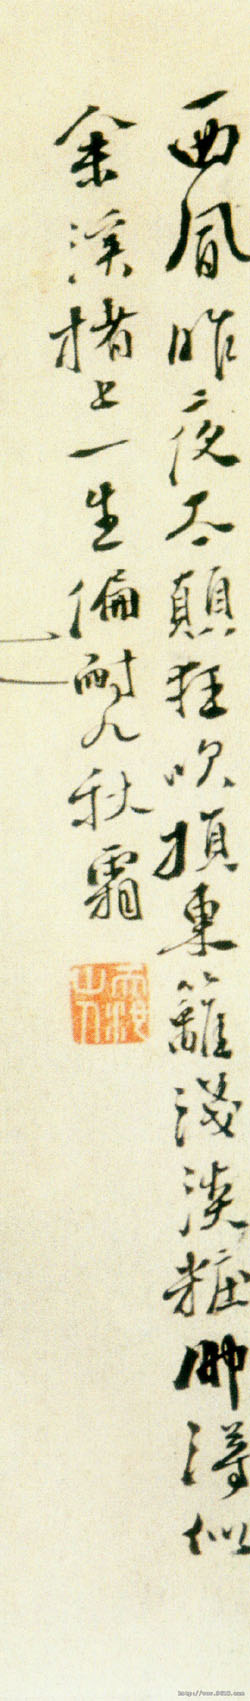 西風昨夜太顛狂吹損東籬淺淡粧那得似
余溪楮上一生偏耐九秋霜
http://www.9610.com